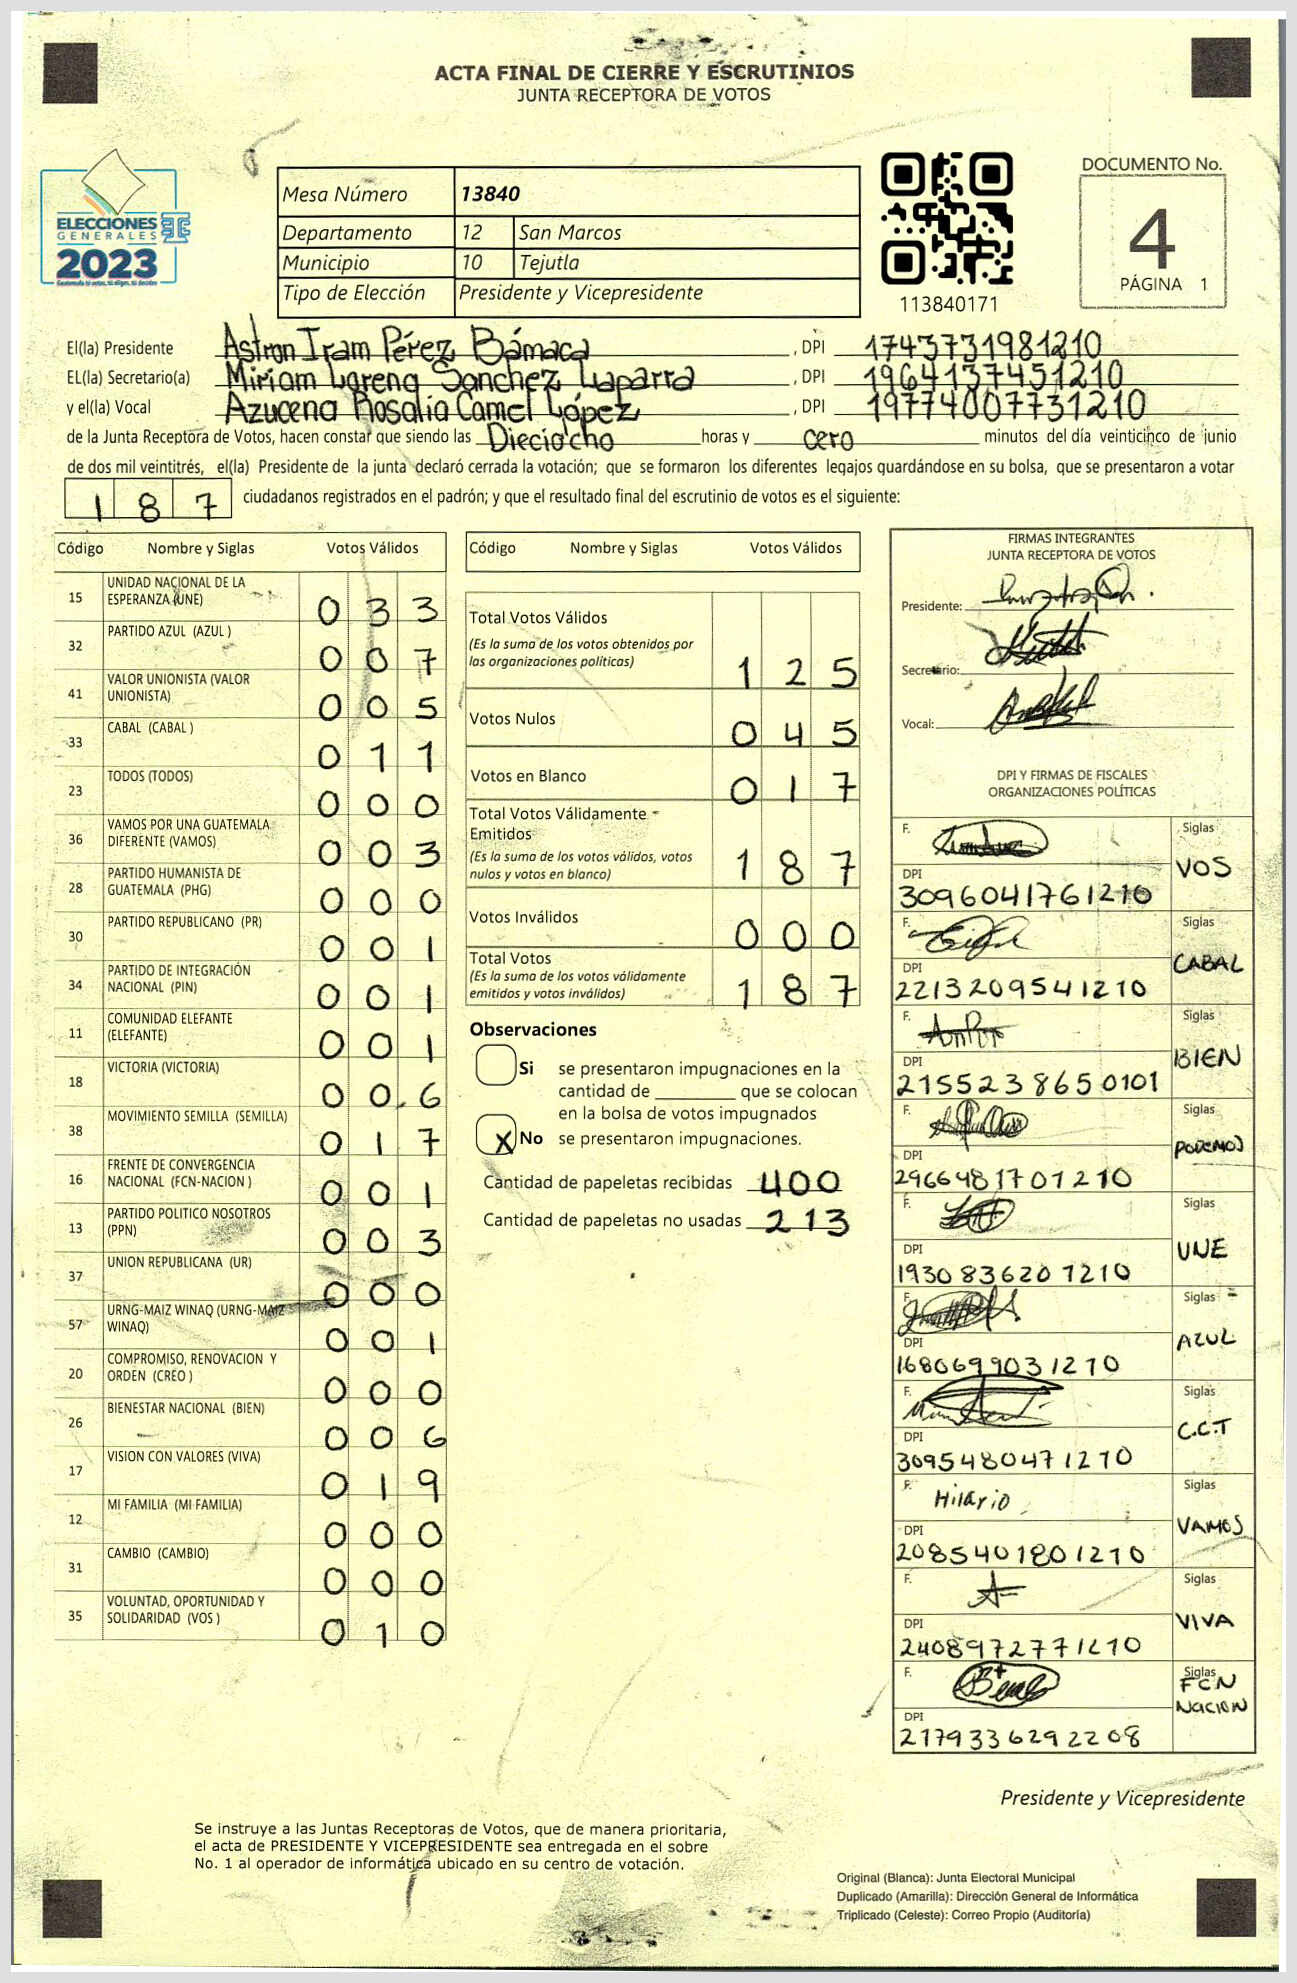 ACTA FINAL DE CIERRE Y ESCRUTINIOS
JUNTA RECEPTORA DE VOTOS
ELECCIONES
GENERALES
2023
Mesa Número 13840
Departamento 12 San Marcos
Municipio 10 Tejutla
Tipo de Elección Presidente y Vicepresidente
113840171
DOCUMENTO No.
4
PÁGINA 1
El(la) Presidente Astron Iram Pérez Bámaca , DPI 1743731981210
EL(la) Secretario(a) Miriam Lorena Sanchez Laparra , DPI 1964137451210
y el(la) Vocal Azucena Rosalia Camel López , DPI 1977400773 1210
de la Junta Receptora de Votos, hacen constar que siendo las Dieciocho horas y cero minutos del día veinticinco de junio
de dos mil veintitrés, el(la) Presidente de la junta declaró cerrada la votación; que se formaron los diferentes legajos quardándose en su bolsa, que se presentaron a votar
187 ciudadanos registrados en el padrón; y que el resultado final del escrutinio de votos es el siguiente:
Código Nombre y Siglas Votos Válidos
15 UNIDAD NACIONAL DE LA ESPERANZA (UNE) 033
32 PARTIDO AZUL (AZUL ) 007
41 VALOR UNIONISTA (VALOR UNIONISTA) 005
33 CABAL (CABAL ) 011
23 TODOS (TODOS) 000
36 VAMOS POR UNA GUATEMALA DIFERENTE (VAMOS) 003
28 PARTIDO HUMANISTA DE GUATEMALA (PHG) 000
30 PARTIDO REPUBLICANO (PR) 001
34 PARTIDO DE INTEGRACIÓN NACIONAL (PIN) 001
11 COMUNIDAD ELEFANTE (ELEFANTE) 001
18 VICTORIA (VICTORIA) 006
38 MOVIMIENTO SEMILLA (SEMILLA) 017
16 FRENTE DE CONVERGENCIA NACIONAL (FCN-NACION ) 001
13 PARTIDO POLITICO NOSOTROS (PPN) 003
37 UNION REPUBLICANA (UR) 000
57 URNG-MAIZ WINAQ (URNG-MAIZ WINAQ) 001
20 COMPROMISO, RENOVACION Y ORDEN (CREO ) 000
26 BIENESTAR NACIONAL (BIEN) 006
17 VISION CON VALORES (VIVA) 019
12 MI FAMILIA (MI FAMILIA) 000
31 CAMBIO (CAMBIO) 000
35 VOLUNTAD, OPORTUNIDAD Y SOLIDARIDAD (VOS ) 010
Código Nombre y Siglas Votos Válidos
Total Votos Válidos
(Es la suma de los votos obtenidos por
las organizaciones políticas) 125
Votos Nulos 045
Votos en Blanco 017
Total Votos Válidamente
Emitidos
(Es la suma de los votos válidos, votos
nulos y votos en blanco) 187
Votos Inválidos 000
Total Votos
(Es la suma de los votos válidamente
emitidos y votos inválidos) 187
Observaciones
Si se presentaron impugnaciones en la
cantidad de ________ que se colocan
en la bolsa de votos impugnados
X No se presentaron impugnaciones.
Cantidad de papeletas recibidas 400
Cantidad de papeletas no usadas 213
FIRMAS INTEGRANTES
JUNTA RECEPTORA DE VOTOS
Presidente:
Secretario:
Vocal:
DPI Y FIRMAS DE FISCALES
ORGANIZACIONES POLÍTICAS
F. Siglas VOS
DPI 3096041761210
F. Siglas CABAL
DPI 2213209541210
F. Siglas BIEN
DPI 2155238650101
F. Siglas PODEMOS
DPI 2966481701210
F. Siglas UNE
DPI 1930836201210
F. Siglas AZUL
DPI 1680699031210
F. Siglas C.C.T
DPI 3095480471210
F. Hilario Siglas VAMOS
DPI 2085401801210
F. Siglas VIVA
DPI 2408972771210
F. Siglas FCN NACION
DPI 2179336292208
Presidente y Vicepresidente
Se instruye a las Juntas Receptoras de Votos, que de manera prioritaria,
el acta de PRESIDENTE Y VICEPRESIDENTE sea entregada en el sobre
No. 1 al operador de informática ubicado en su centro de votación.
Original (Blanca): Junta Electoral Municipal
Duplicado (Amarilla): Dirección General de Informática
Triplicado (Celeste): Correo Propio (Auditoría)